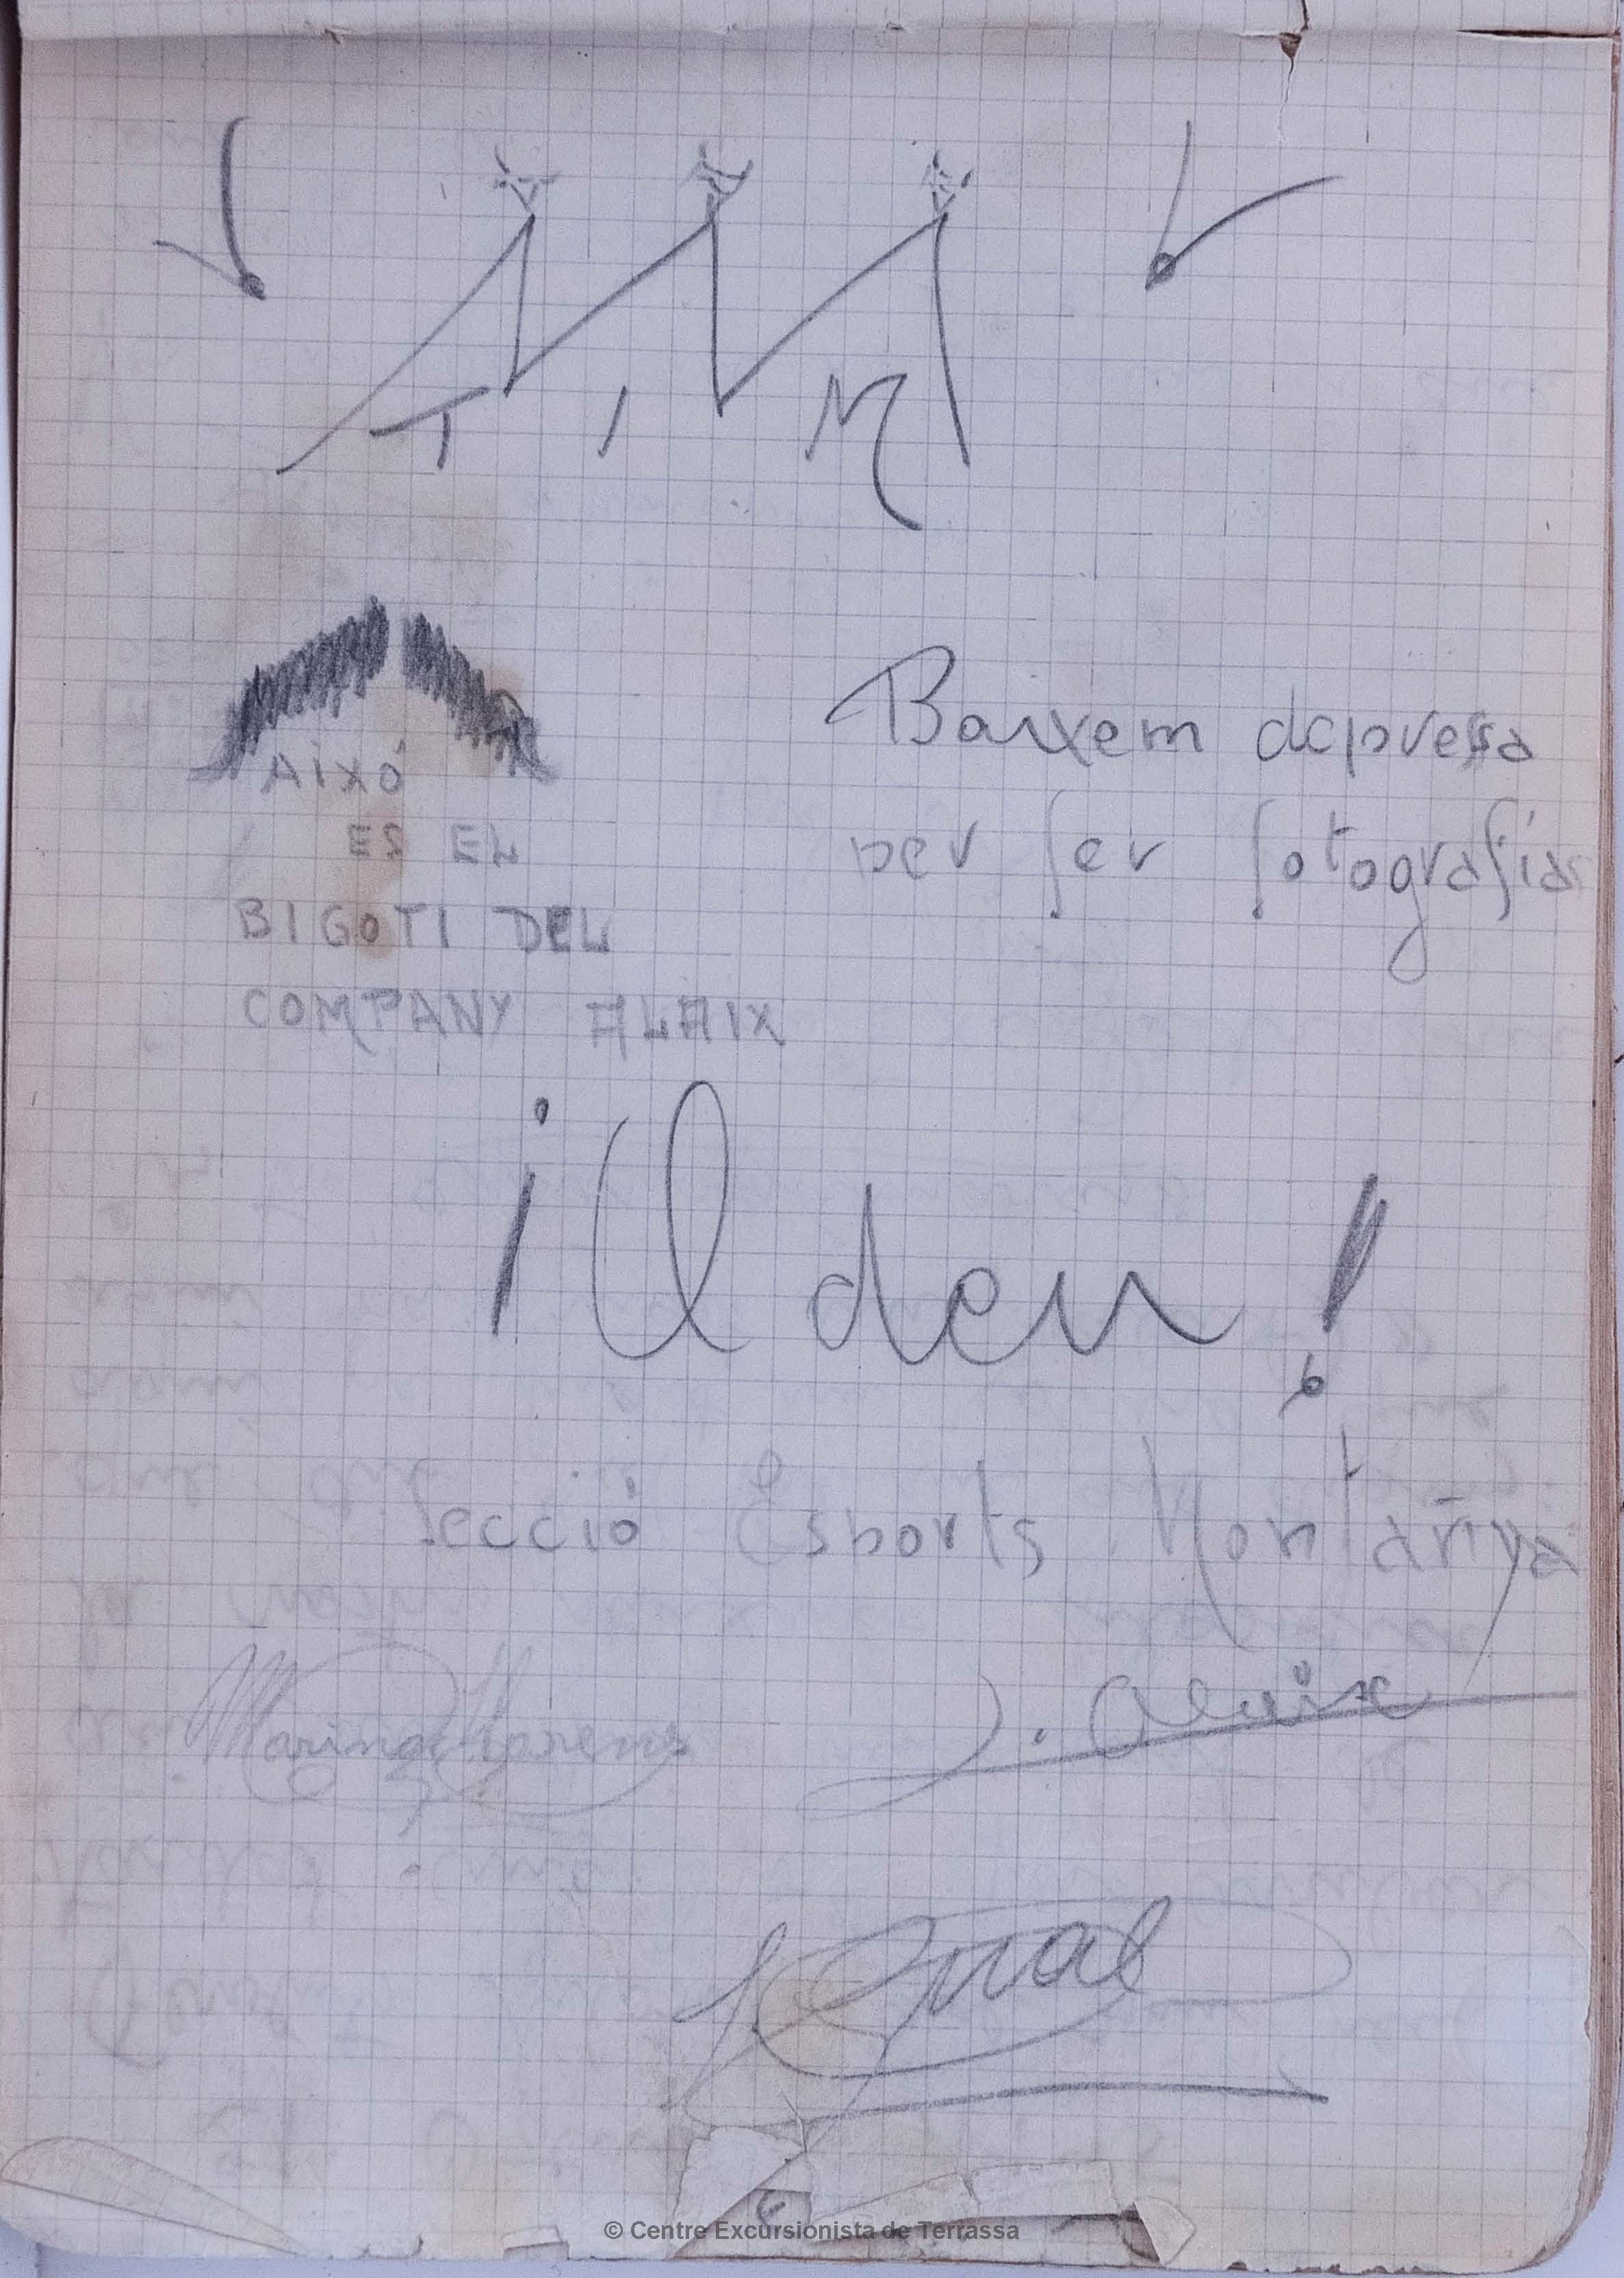 T I M
AIXÓ
ES EL
BIGOTI DEL
COMPANY ALAIX
Baixem depressa
per fer fotografías
¡Ull deu!
Secció Esports Montañya
Marina Llorens
J. Alaix
© Centre Excursionista de Terrassa